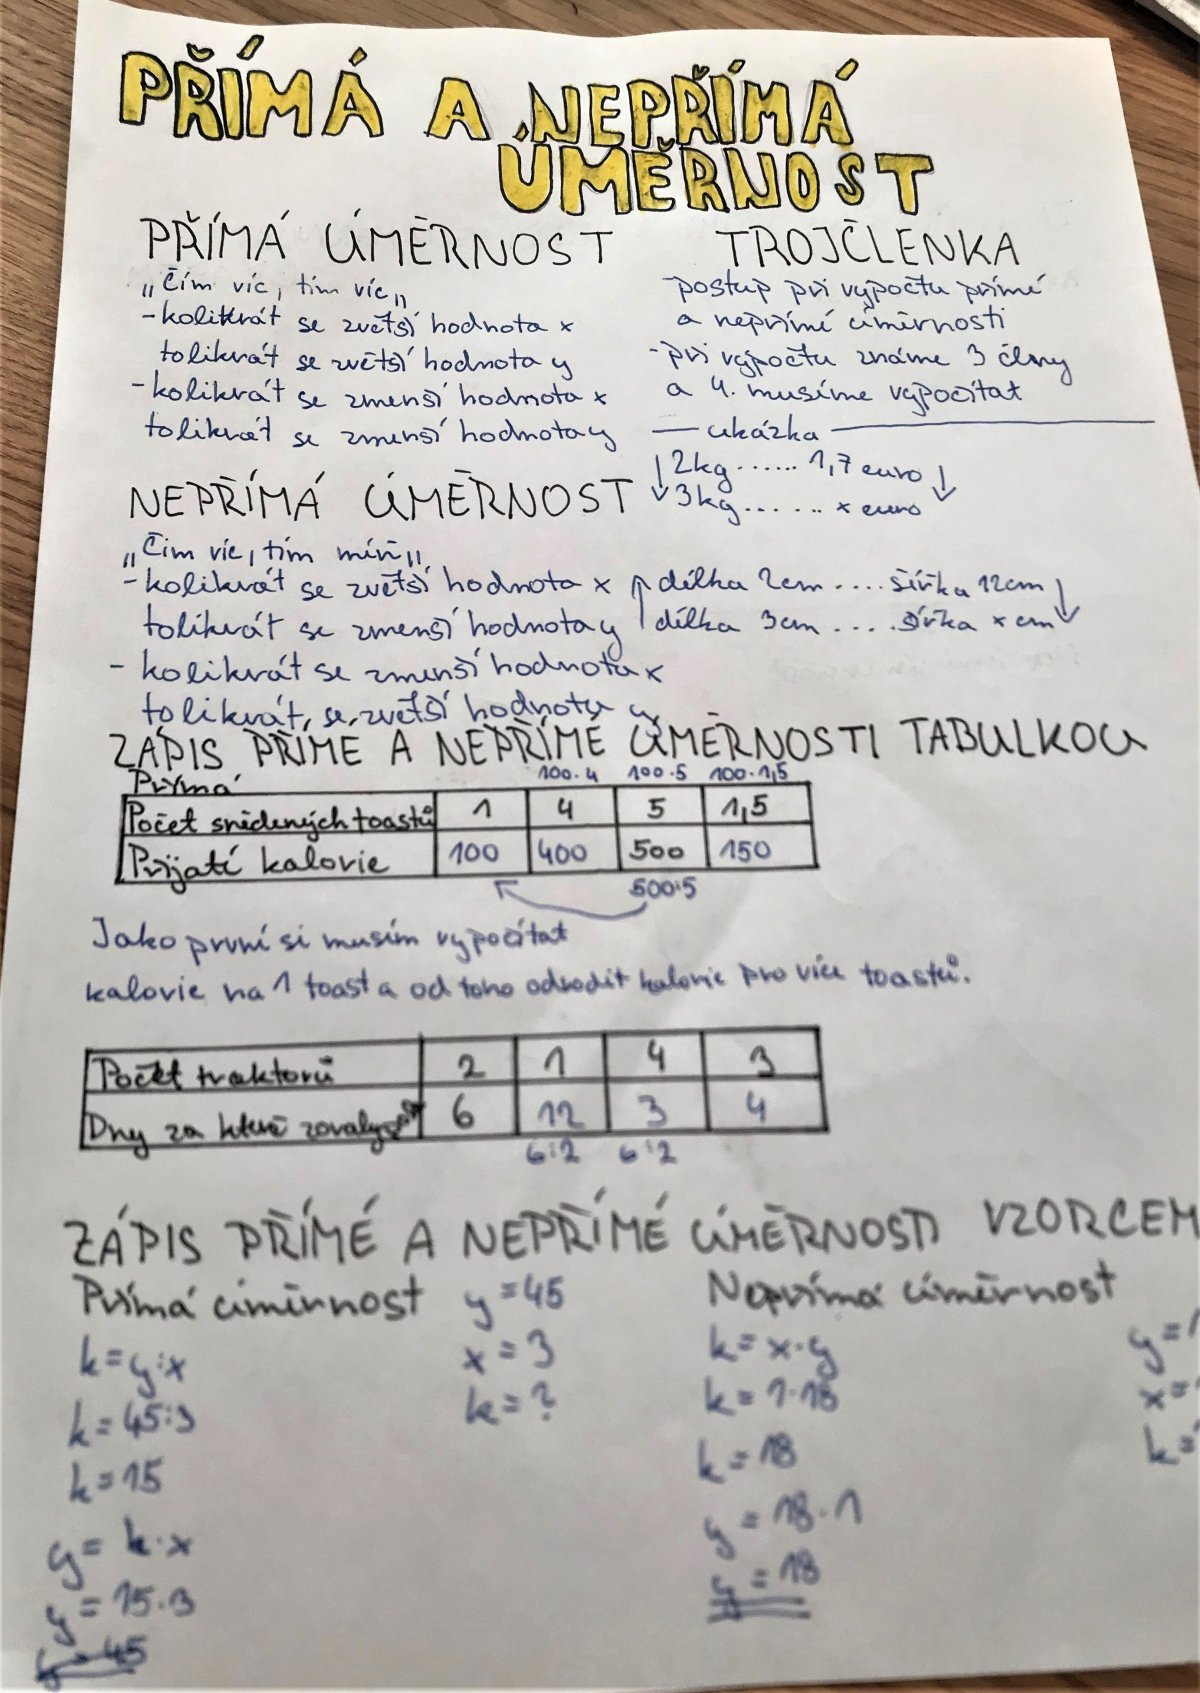 PŘÍMÁ A NEPŘÍMÁ
ÚMĚRNOST
PŘÍMÁ ÚMĚRNOST
„Čím víc, tím víc„
-kolikrát se zvětší hodnota x
tolikrát se zvětší hodnota y
-kolikrát se zmenší hodnota x
tolikrát se zmenší hodnota y
NEPŘÍMÁ ÚMĚRNOST
„Čím víc, tím míň„
-kolikrát se zvětší hodnota x
tolikrát se zmenší hodnota y
- kolikrát se zmenší hodnota x
tolikrát se zvětší hodnota y
TROJČLENKA
-postup při výpočtu přímé
a nepřímé úměrnosti
-při výpočtu známe 3 členy
a 4. musíme vypočítat
ukázka
↓2kg ...... 1,7 euro↓
3kg...... x euro
↑délka 2cm .... šířka 12cm↓
délka 3cm .... šířka x cm
ZÁPIS PŘÍMÉ A NEPŘÍMÉ ÚMĚRNOSTI TABULKOU
Přímá 100·4 100·5 100·1,5
Počet snídených toastů 1 4 5 1,5
Přijatí kalorie 100 400 500 150
500:5
Jako první si musím vypočítat
kalorie na 1 toast a od toho odvodit kalorie pro více toastů.
Počet traktorů 2 1 4 3
Dny za které 6 12 3 4
6:2 6:2
ZÁPIS PŘÍMÉ A NEPŘÍMÉ ÚMĚRNOSTI VZORCEM
Přímá úměrnost
k=y:x
k=45:3
k=15
y= k·x
y=15·3
y=45
y=45
x=3
k=?
Nepřímá úměrnost
k=x·y
k=1·18
k=18
y=18·1
y=18
y=1
x=
k=